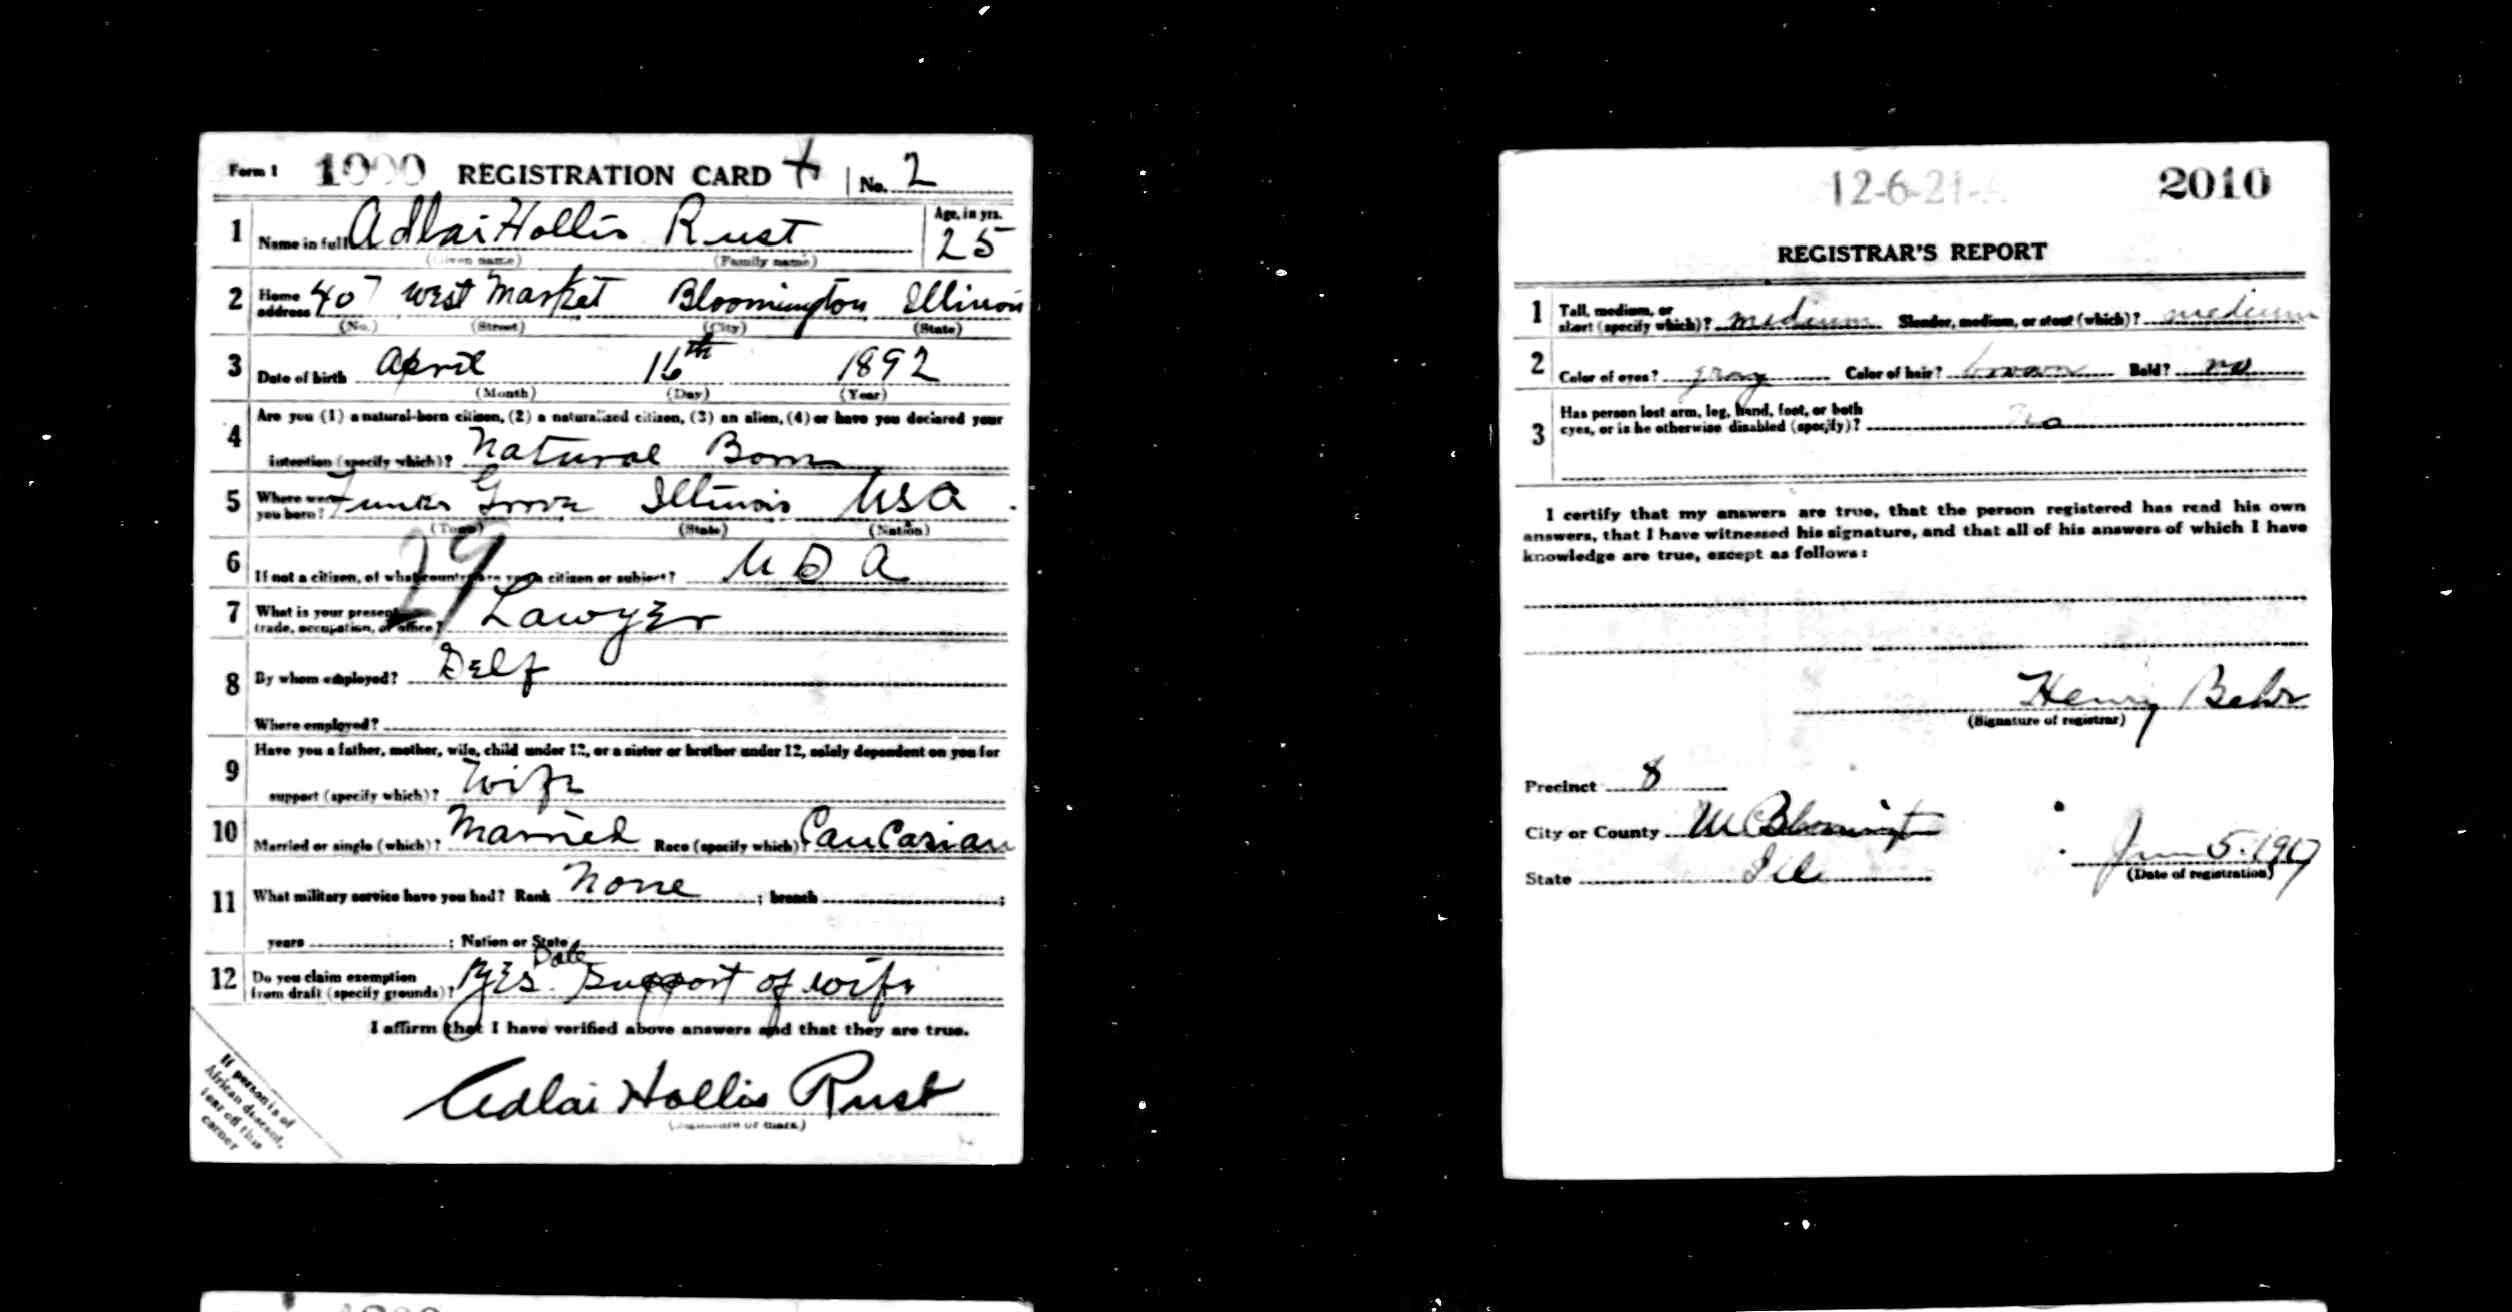 Form 1 REGISTRATION CARD No. 2
1 Name in full Adlai Hollis Rust Age, in yrs. 25
(Given name) (Family name)
2 Home address 407 West Market Bloomington Illinois
(No.) (Street) (City) (State)
3 Date of birth April 16th 1892
(Month) (Day) (Year)
4 Are you (1) a natural-born citizen, (2) a naturalized citizen, (3) an alien, (4) or have you declared your
intention (specify which)? Natural Born
5 Where were you born? Funks Grove Illinois USA
(Town) (State) (Nation)
6 If not a citizen, of what country are you a citizen or subject? U S A
29
7 What is your present trade, occupation, or office? Lawyer
8 By whom employed? Self
Where employed?
9 Have you a father, mother, wife, child under 12, or a sister or brother under 12, solely dependent on you for
support (specify which)? Wife
10 Married or single (which)? Married Race (specify which)? Caucasian
11 What military service have you had? Rank None ; branch ;
years ; Nation or State
12 Do you claim exemption from draft (specify grounds)? Yes. Support of wife
I affirm that I have verified above answers and that they are true.
Adlai Hollis Rust
(Signature or mark)
If person is of
African descent,
tear off this
corner
12-6-21- 2010
REGISTRAR'S REPORT
1 Tall, medium, or
short (specify which)? medium Slender, medium, or stout (which)? medium
2 Color of eyes? gray Color of hair? brown Bald? no
3 Has person lost arm, leg, hand, foot, or both
eyes, or is he otherwise disabled (specify)? No
I certify that my answers are true, that the person registered has read his own
answers, that I have witnessed his signature, and that all of his answers of which I have
knowledge are true, except as follows:
Henry Behr
(Signature of registrar)
Precinct 8
City or County Bloomington
State Ill
June 5. 1917
(Date of registration)